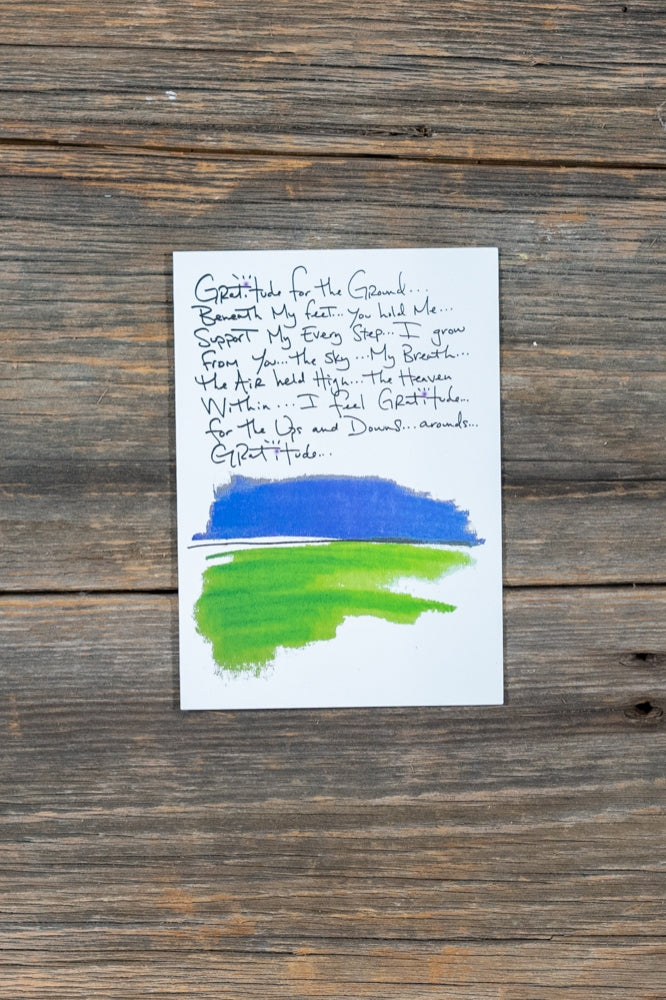 Gratitude for the Ground...
Beneath My feet... You hold Me...
Support My Every Step... I grow
from You... the Sky... My Breath...
the Air held High... the Heaven
Within... I feel Gratitude...
for the Ups and Downs... arounds...
Gratitude...